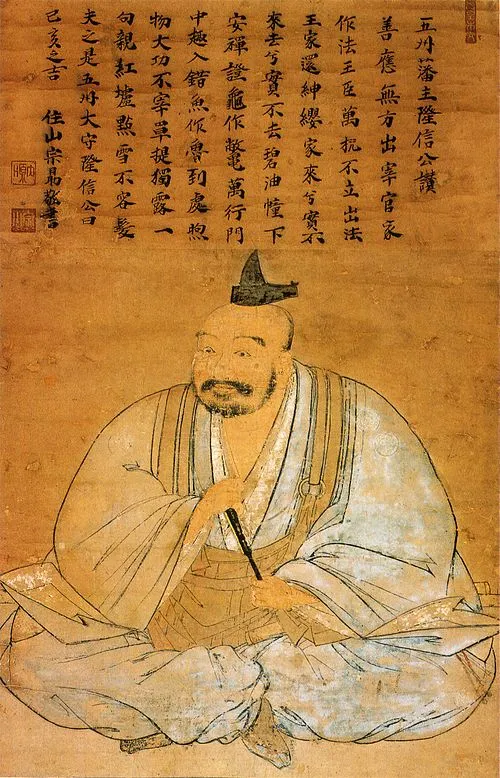 五州藩主隆信公讚
善應無方出宰官家
作法王臣萬杭不立出法
王家還紳纓家來兮實不
來去兮實不去碧油幢下
安禪證龜作鼈萬行門
中趣入錯魚作魯到處煦
物大功不宰單提獨露一
句親紅壚點雪不容髮
夫之是五州大守隆信公曰
己亥之吉 住山宗昂敬書